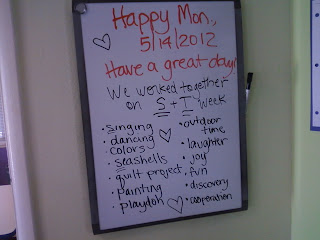 Happy Mon.,
5/14/2012
Have a great day!
We worked together
on S + T week
• singing
• dancing
• colors
• seashells
• quilt project
• painting
• playdoh
• outdoor
time
• laughter
• joy
• fun
• discovery
• cooperation